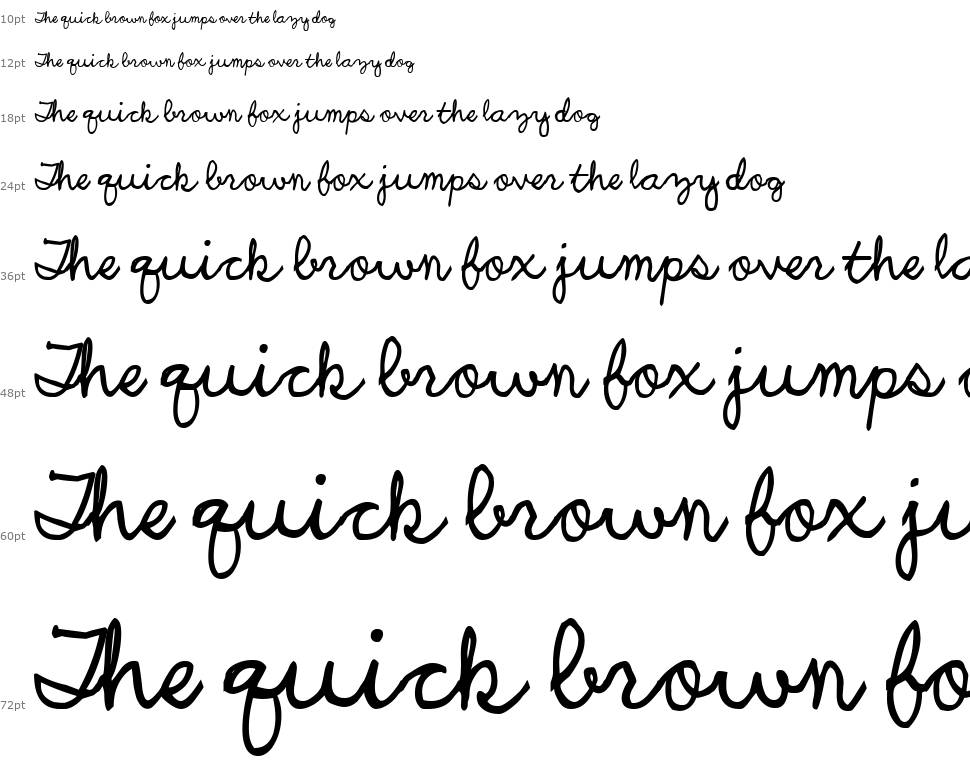 10pt The quick brown fox jumps over the lazy dog
12pt The quick brown fox jumps over the lazy dog
18pt The quick brown fox jumps over the lazy dog
24pt The quick brown fox jumps over the lazy dog
36pt The quick brown fox jumps over the la
48pt The quick brown fox jumps
60pt The quick brown fox ju
72pt The quick brown fo